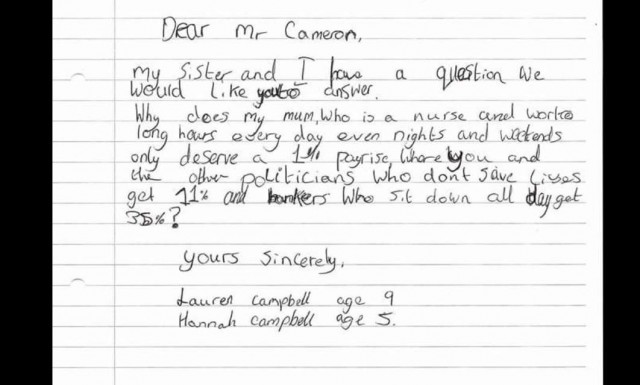 Dear Mr Cameron,
my Sister and I have a question we
would like you to answer.
Why does my mum, who is a nurse and works
long hours every day even nights and weekends
only deserve a 1% payrise, where you and
the other politicians who don't save lives
get 11% and bankers who sit down all day get
35%?
yours sincerely,
Lauren campbell age 9
Hannah campbell age 5.